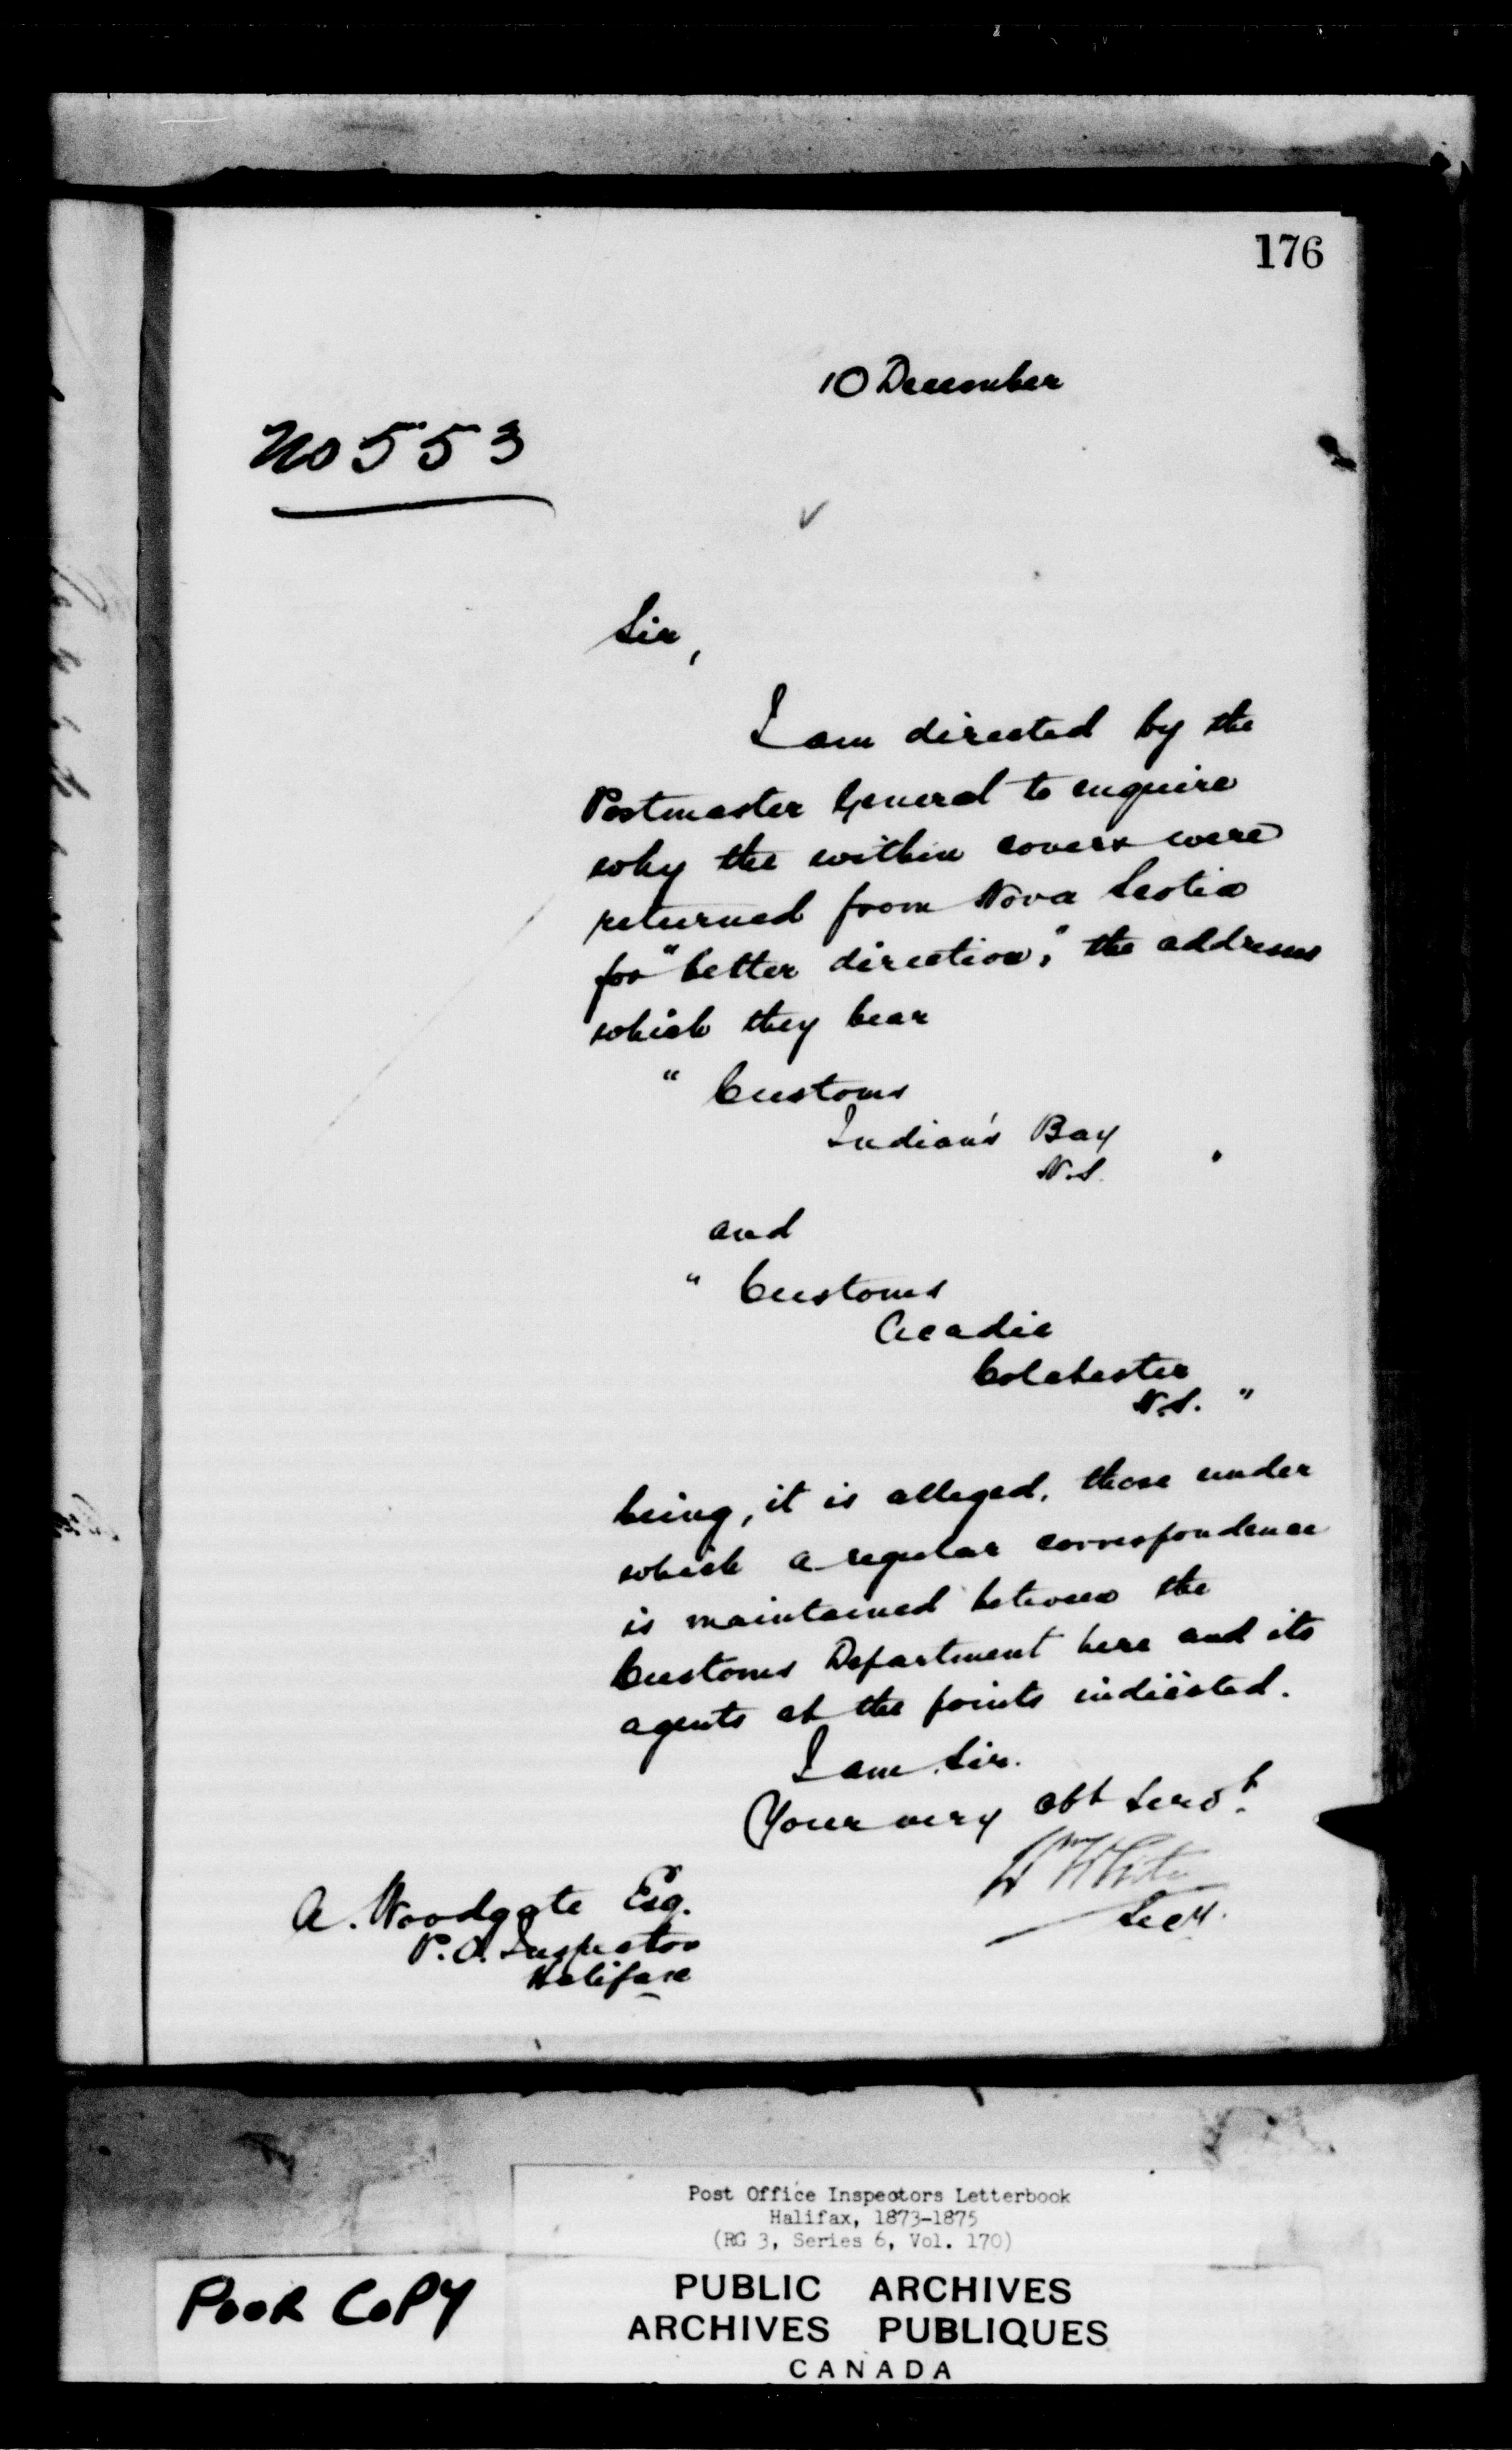 176
10 December
No 553
Sir,
I am directed by the
Postmaster General to enquire
why the within covers were
returned from Nova Scotia
for "better direction," the addresses
which they bear
" Customs
Indian's Bay
N.S. "
and
" Customs
Acadie
Colchester
N.S. "
being, it is alleged, those under
which a regular correspondence
is maintained between the
Customs Department here and its
agents at the points indicated.
I am Sir.
Your very obt Servt.
Wm White
Secy.
A. Woodgate Esq.
P.O. Inspector
Halifax
Post Office Inspectors Letterbook
Halifax, 1873-1875
(RG 3, Series 6, Vol. 170)
POOR COPY
PUBLIC ARCHIVES
ARCHIVES PUBLIQUES
CANADA